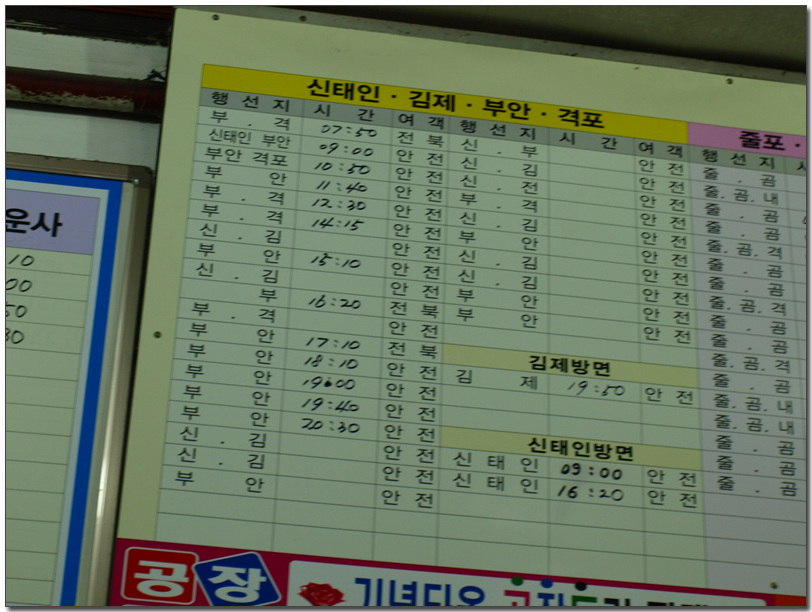 신태인 · 김제 · 부안 · 격포
행 선 지 시 간 여 객 행 선 지 시 간 여 객
부 . 격 07:50 전 북 신 . 부 안 전
신태인 부안 09:00 안 전 신 . 김 안 전
부안 격포 10:50 안 전 신 . 전 안 전
부 안 11:40 안 전 부 . 격 안 전
부 . 격 12:30 안 전 신 . 김 안 전
부 . 격 14:15 안 전 부 안 안 전
신 . 김 안 전 신 . 김 안 전
부 안 15:10 안 전 신 . 김 안 전
신 . 김 안 전 부 안 안 전
부 16:20 전 북 부 안 안 전
부 . 격 안 전
부 안 17:10 전 북
부 안 18:10 안 전
부 안 19:00 안 전
부 안 19:40 안 전
부 안 20:30 안 전
신 . 김 안 전
신 . 김 안 전
부 안 안 전
김제방면
김 제 19:50 안 전
신태인방면
신 태 인 09:00 안 전
신 태 인 16:20 안 전
줄포 ·
행 선 지
줄 . 곰
줄. 곰. 내
줄 . 곰
줄 . 곰
줄. 곰. 격
줄 . 곰
줄 . 곰
줄. 곰. 격
줄 . 곰
줄 . 곰
줄. 곰. 격
줄 . 곰
줄. 곰. 내
줄. 곰. 내
줄 . 곰
줄 . 곰
줄 . 곰
운사
10
00
50
30
공장